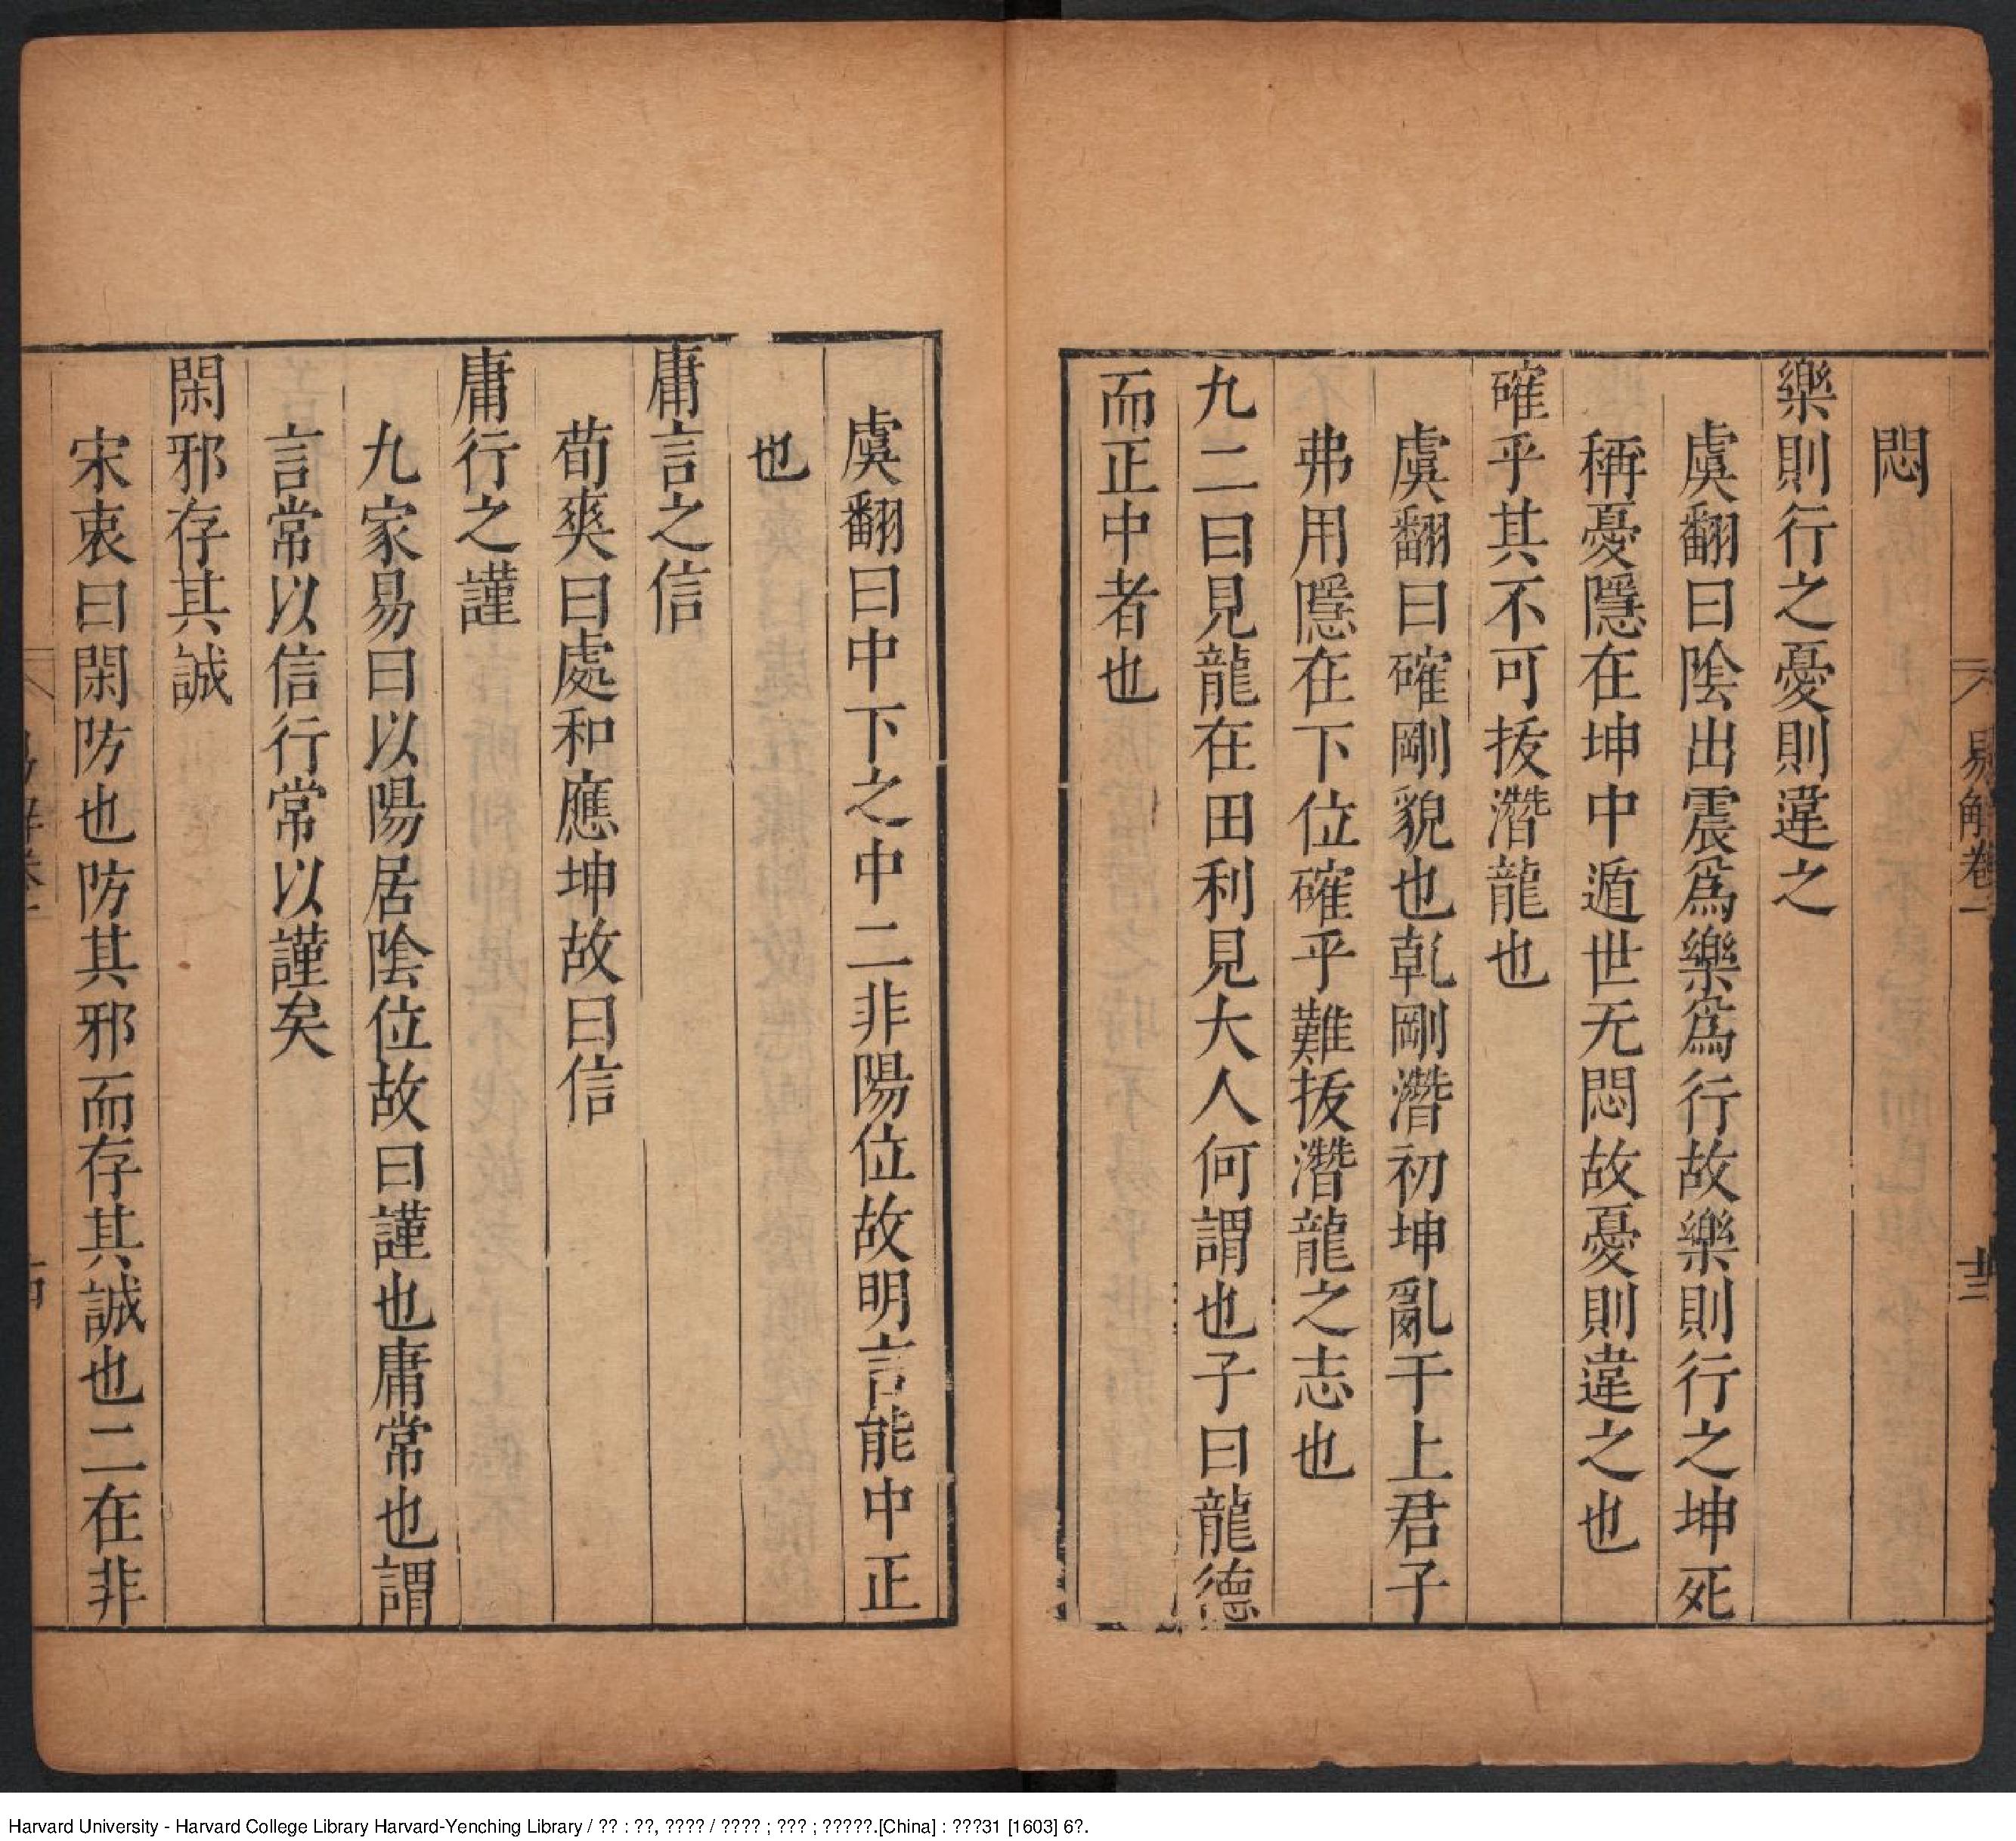 易解卷一
悶
樂則行之憂則違之
虞翻曰陰出震爲樂爲行故樂則行之坤死
稱憂隱在坤中遁世无悶故憂則違之也
確乎其不可拔潛龍也
虞翻曰確剛貌也乾剛潛初坤亂于上君子
弗用隱在下位確乎難拔潛龍之志也
九二曰見龍在田利見大人何謂也子曰龍德
而正中者也
虞翻曰中下之中二非陽位故明言能中正
也
庸言之信
荀爽曰處和應坤故曰信
庸行之謹
九家易曰以陽居陰位故曰謹也庸常也謂
言常以信行常以謹矣
閑邪存其誠
宋衷曰閑防也防其邪而存其誠也二在非
Harvard University - Harvard College Library Harvard-Yenching Library / ?? : ??, ???? / ???? ; ??? ; ?????.[China] : ???31 [1603] 6?.